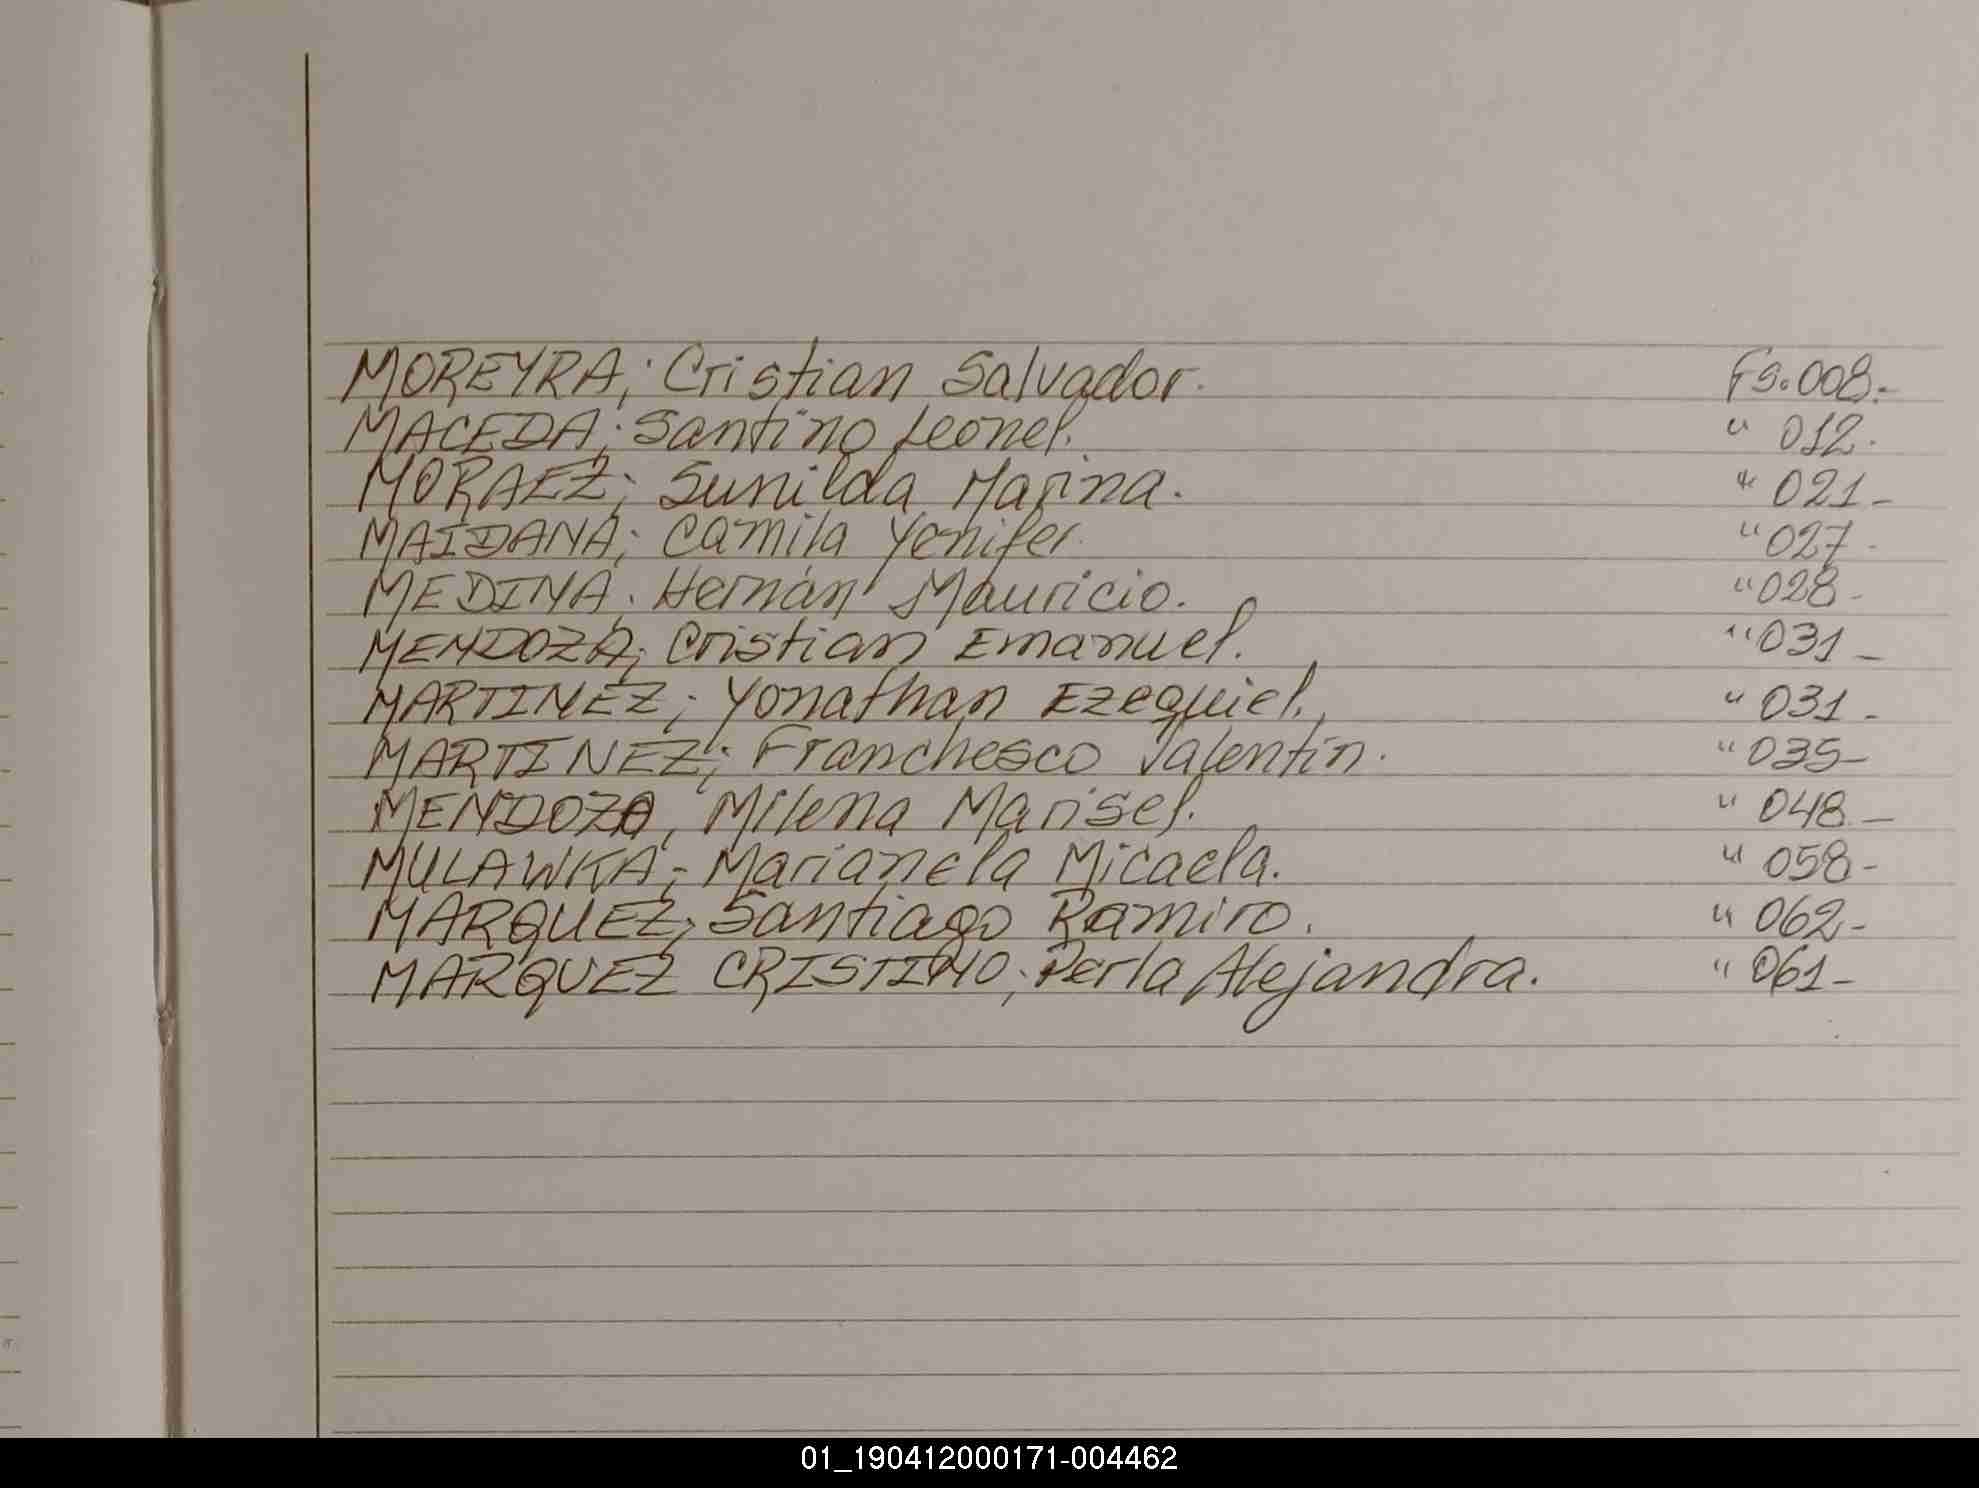 MOREYRA; Cristian Salvador. Fs. 008.-
MACEDA; Santino Leonel. " 012.
MORAEZ; Sunilda Marina. " 021-
MAIDANA; Camila Yenifer. " 027-
MEDINA. Hernán Mauricio. " 028-
MENDOZA; Cristian Emanuel. " 031-
MARTINEZ; Yonathan Ezequiel. " 031-
MARTINEZ; Franchesco Valentín. " 035-
MENDOZA, Milena Marisel. " 048.-
MULAWKA; Marianela Micaela. " 058-
MARQUEZ; Santiago Ramiro. " 062-
MARQUEZ CRISTINO; Perla Alejandra. " 061-
01_190412000171-004462